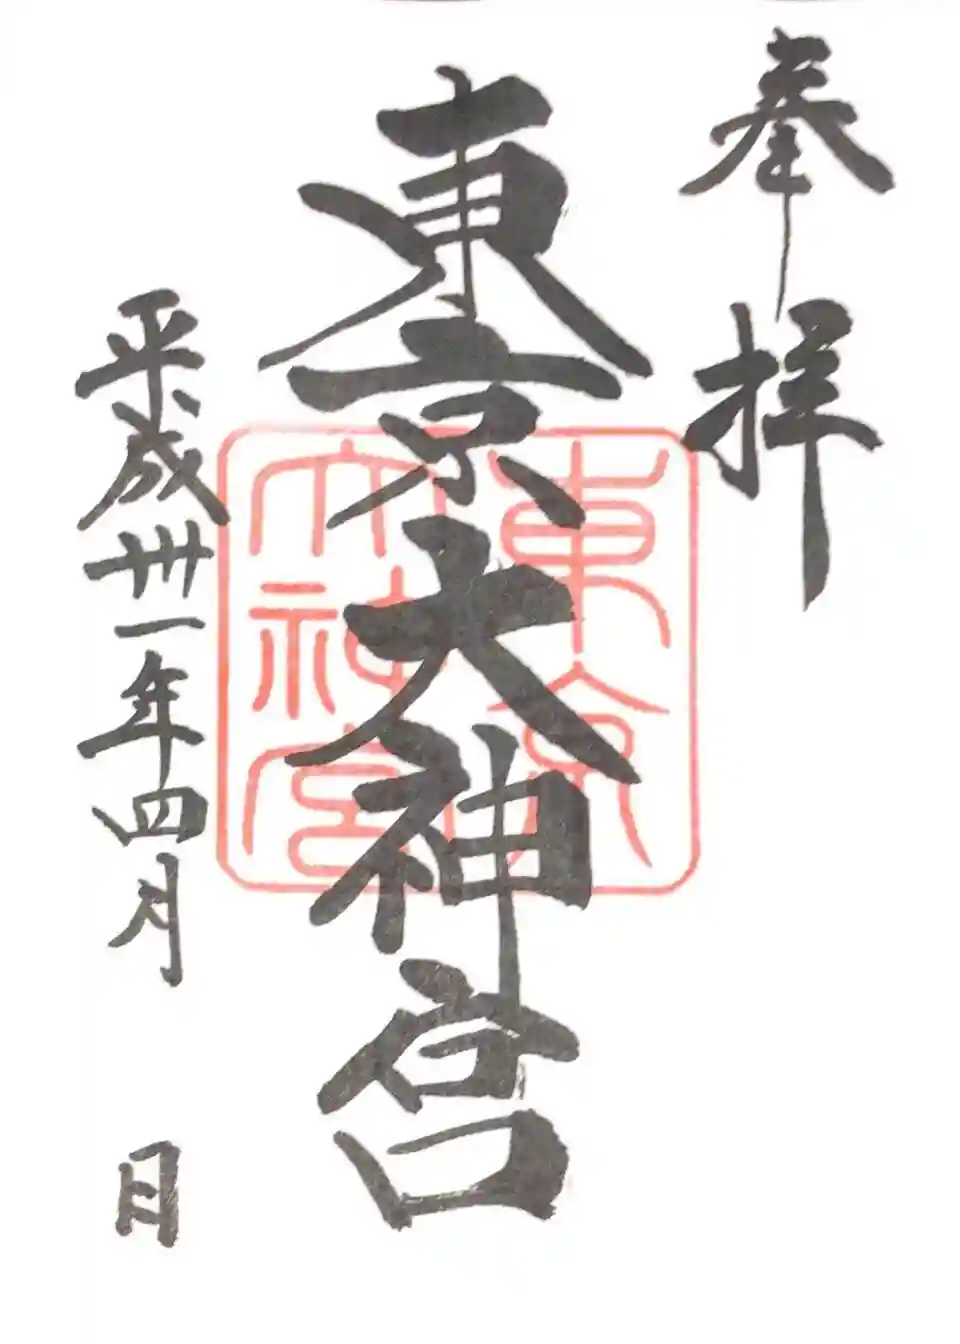 奉拝
東京大神宮
東京
大神宮
平成卅一年四月 日